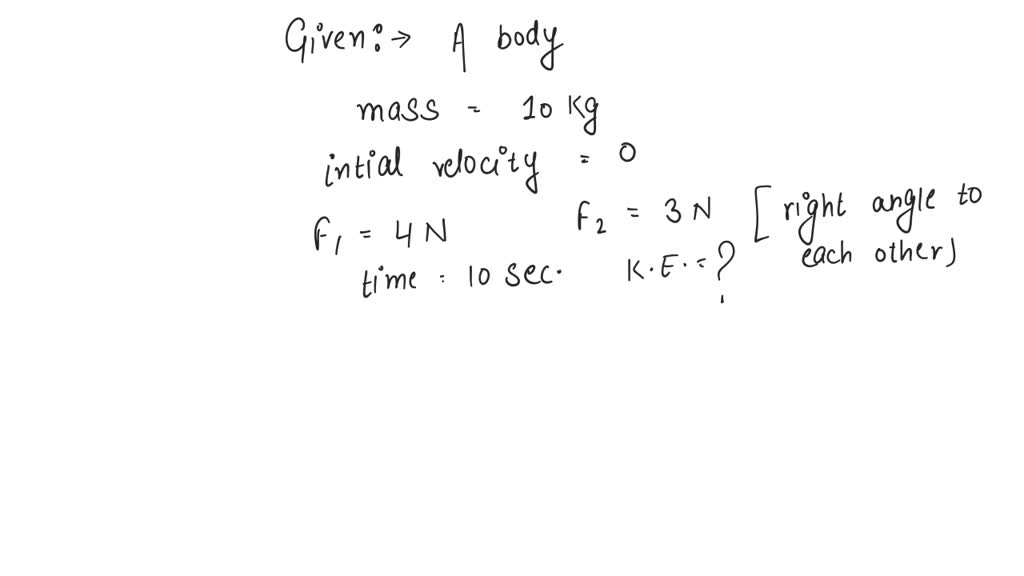 Given:→ A body
mass = 10 Kg
intial velocity = 0
F1 = 4 N F2 = 3 N [right angle to each other)
time = 10 sec. K.E. = ?